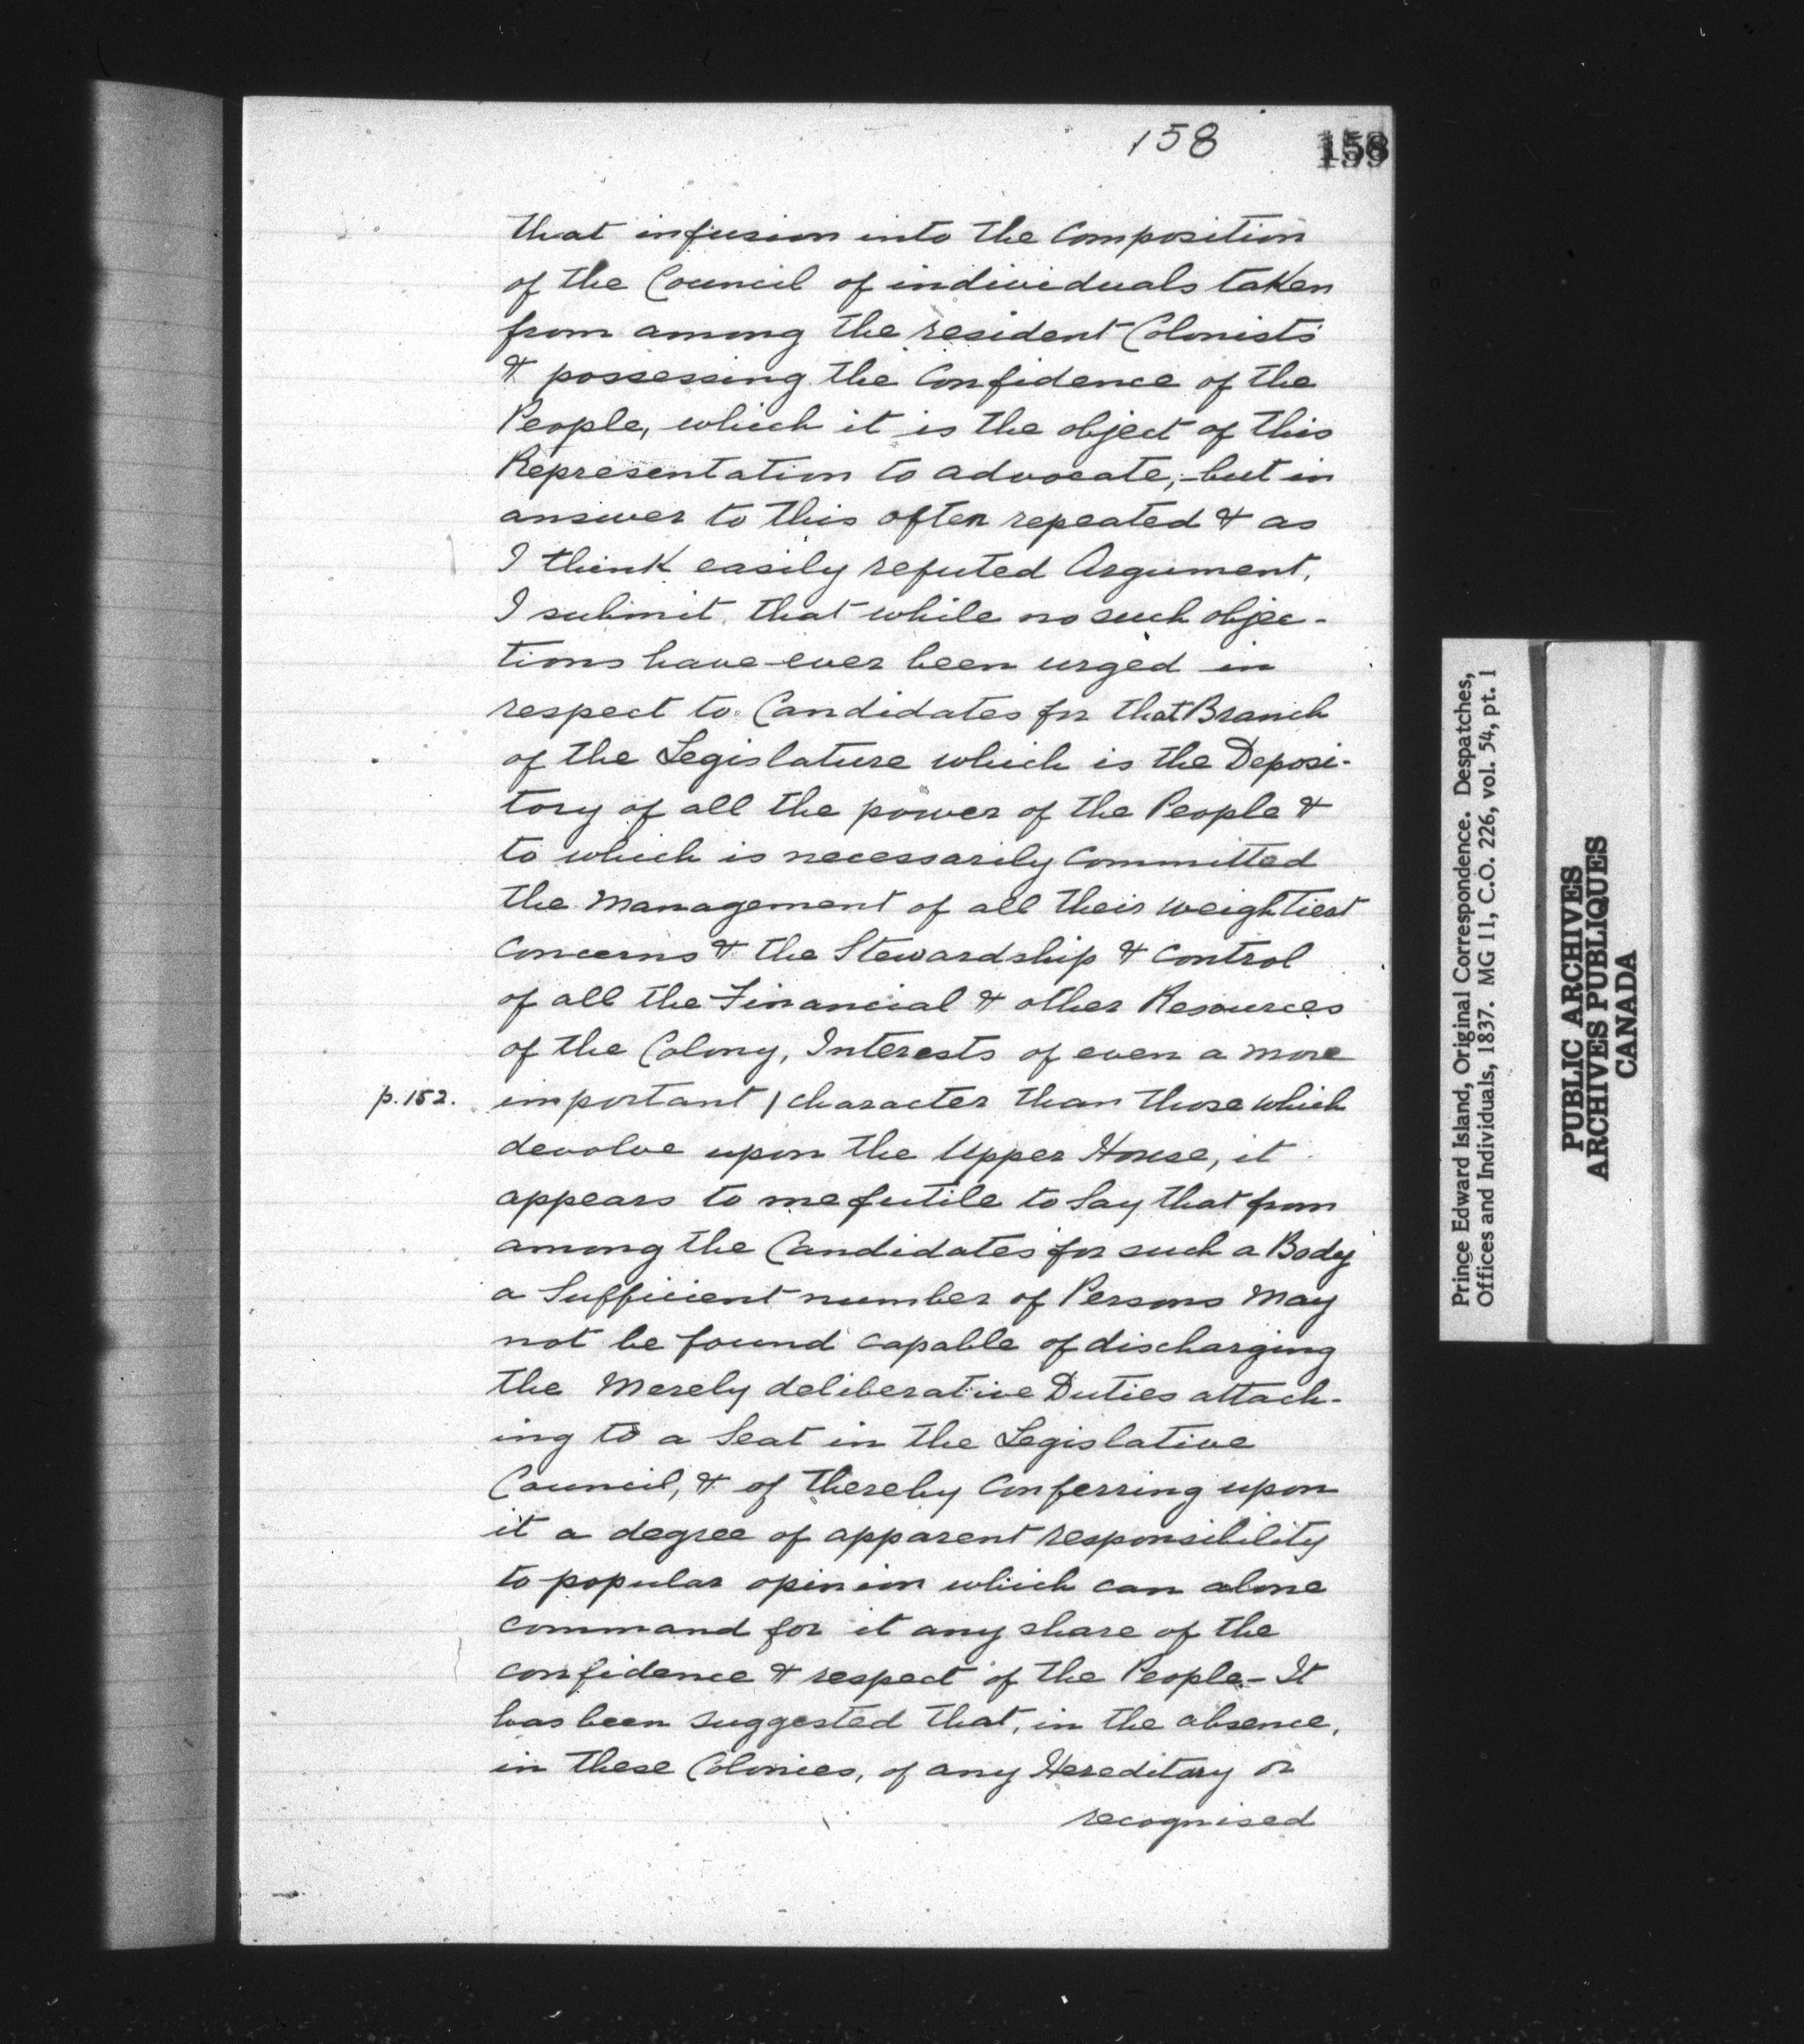 158
that infusion into the Composition
of the Council of individuals taken
from among the resident Colonists
& possessing the Confidence of the
People, which it is the object of this
Representation to advocate,- but in
answer to this often repeated & as
I think easily refuted Argument,
I submit, that while no such objec-
tions have ever been urged in
respect to Candidates for that Branch
of the Legislature which is the Deposi-
tory of all the power of the People &
to which is necessarily Committed
the Management of all their weightiest
Concerns & the Stewardship & Control
of all the Financial & other Resources
of the Colony, Interests of even a more
p. 152. important / character than those which
devolve upon the Upper House, it
appears to me futile to say that from
among the Candidates for such a Body
a Sufficient number of Persons may
not be found capable of discharging
the Merely deliberative Duties attach-
ing to a Seat in the Legislative
Council, & of thereby Conferring upon
it a degree of apparent responsibility
to popular opinion which can alone
command for it any share of the
confidence & respect of the People.- It
has been suggested that, in the absence,
in these Colonies, of any Hereditary or
recognised
Prince Edward Island, Original Correspondence. Despatches,
Offices and Individuals, 1837. MG 11, C.O. 226, vol. 54, pt. 1
PUBLIC ARCHIVES
ARCHIVES PUBLIQUES
CANADA